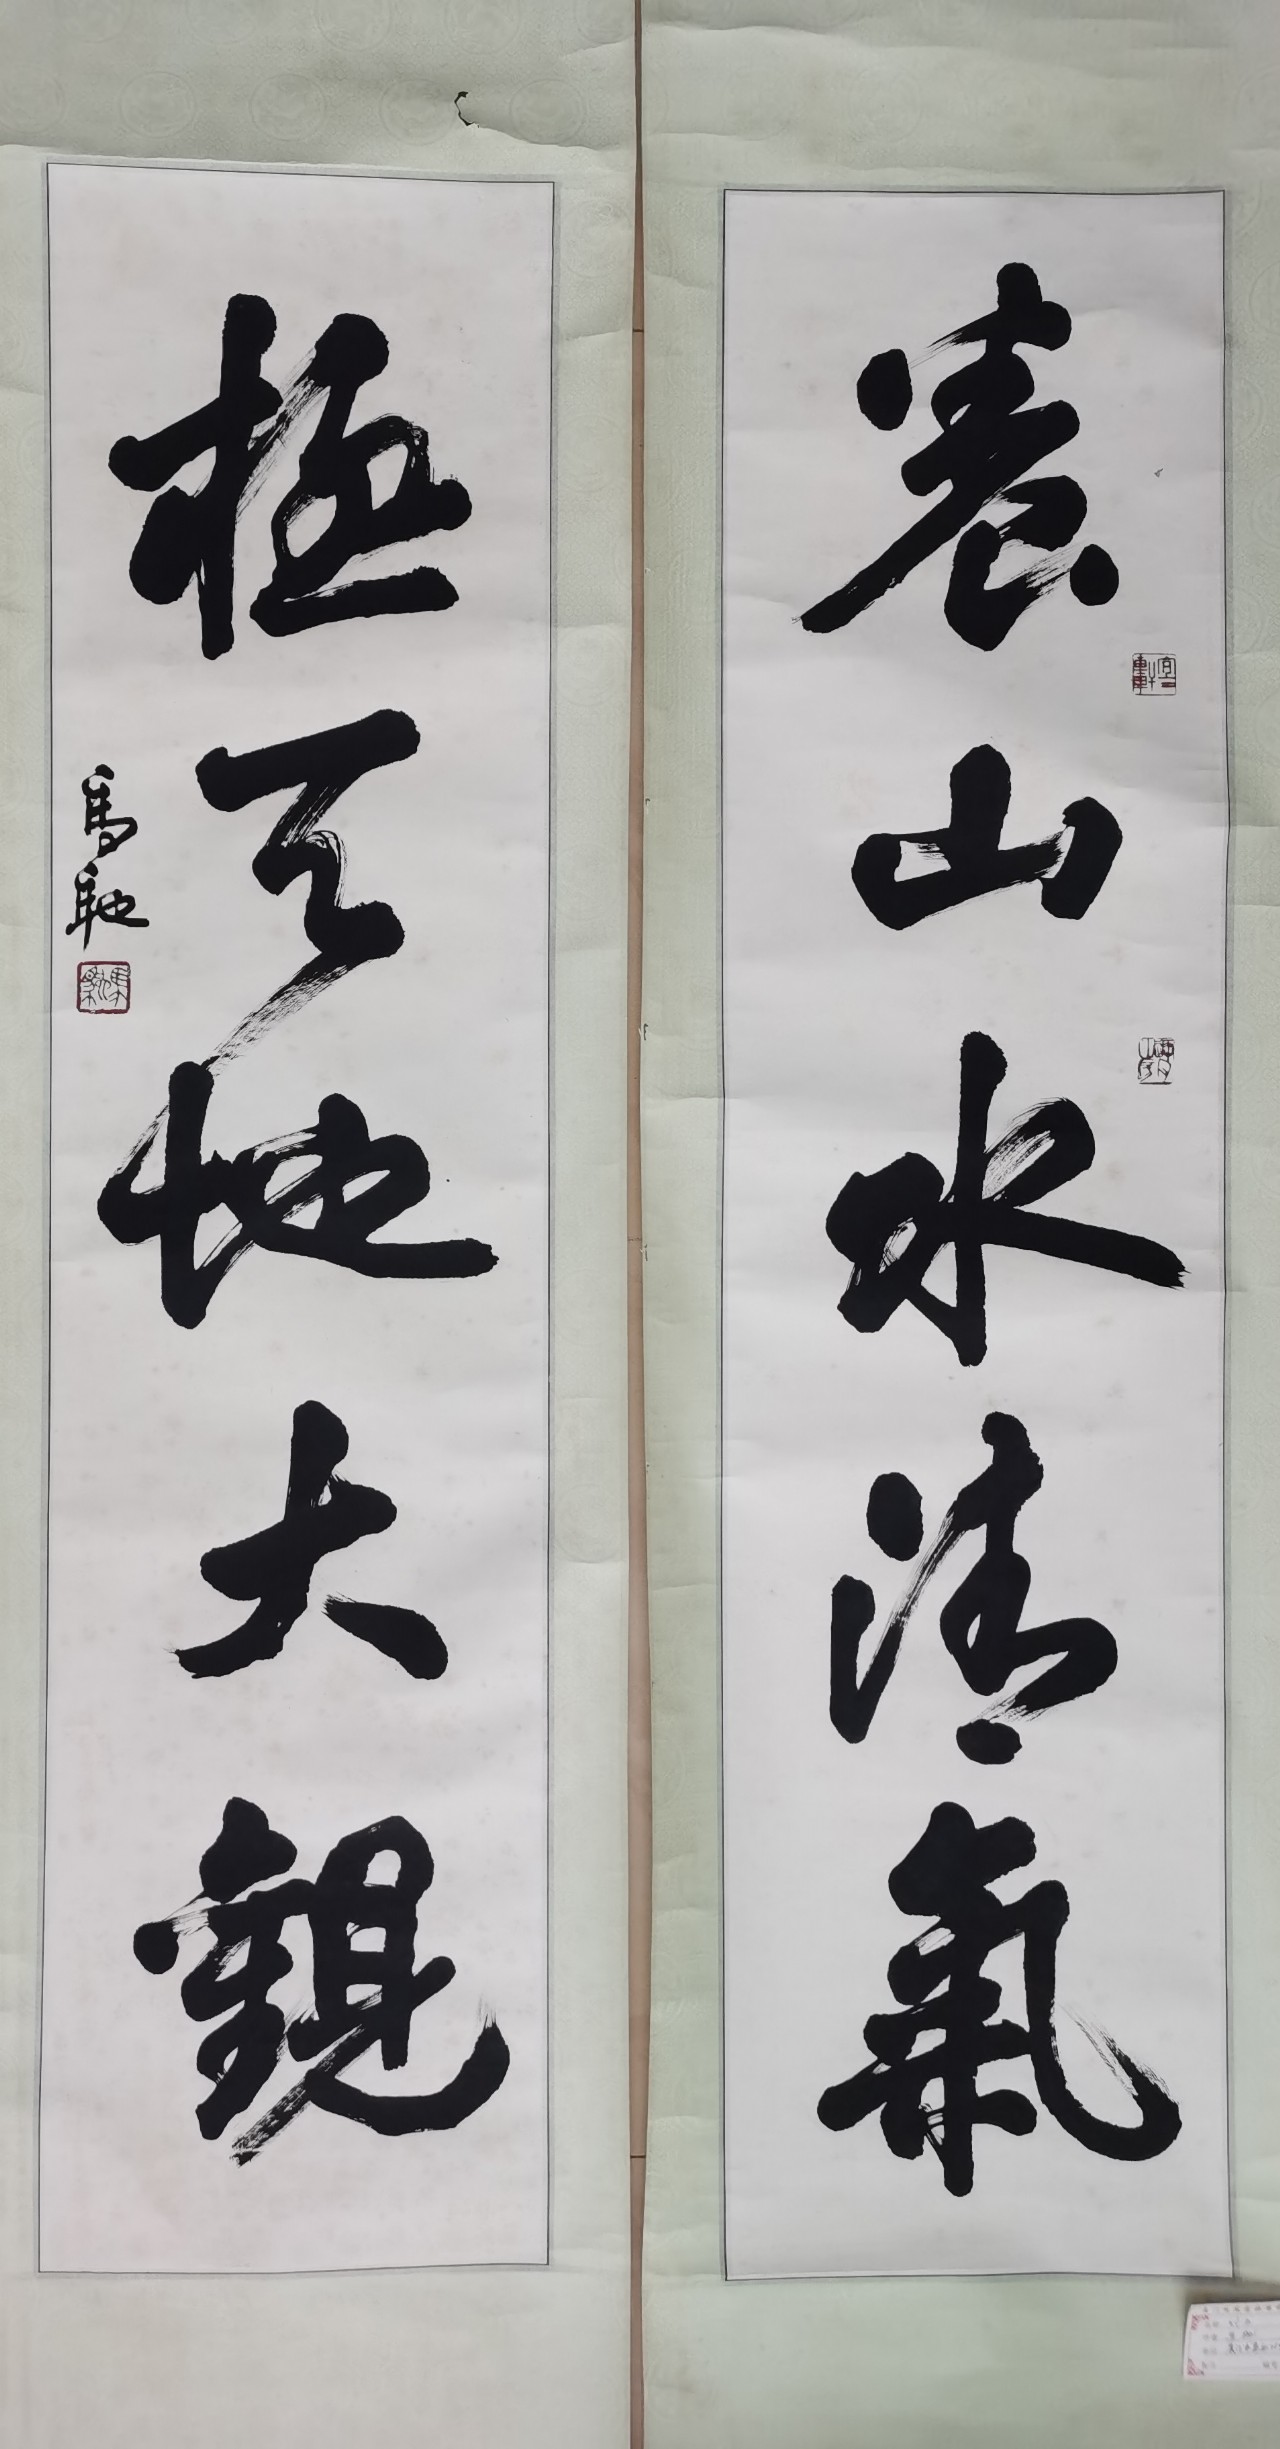 養山水清氣
極天地大觀
馬馳